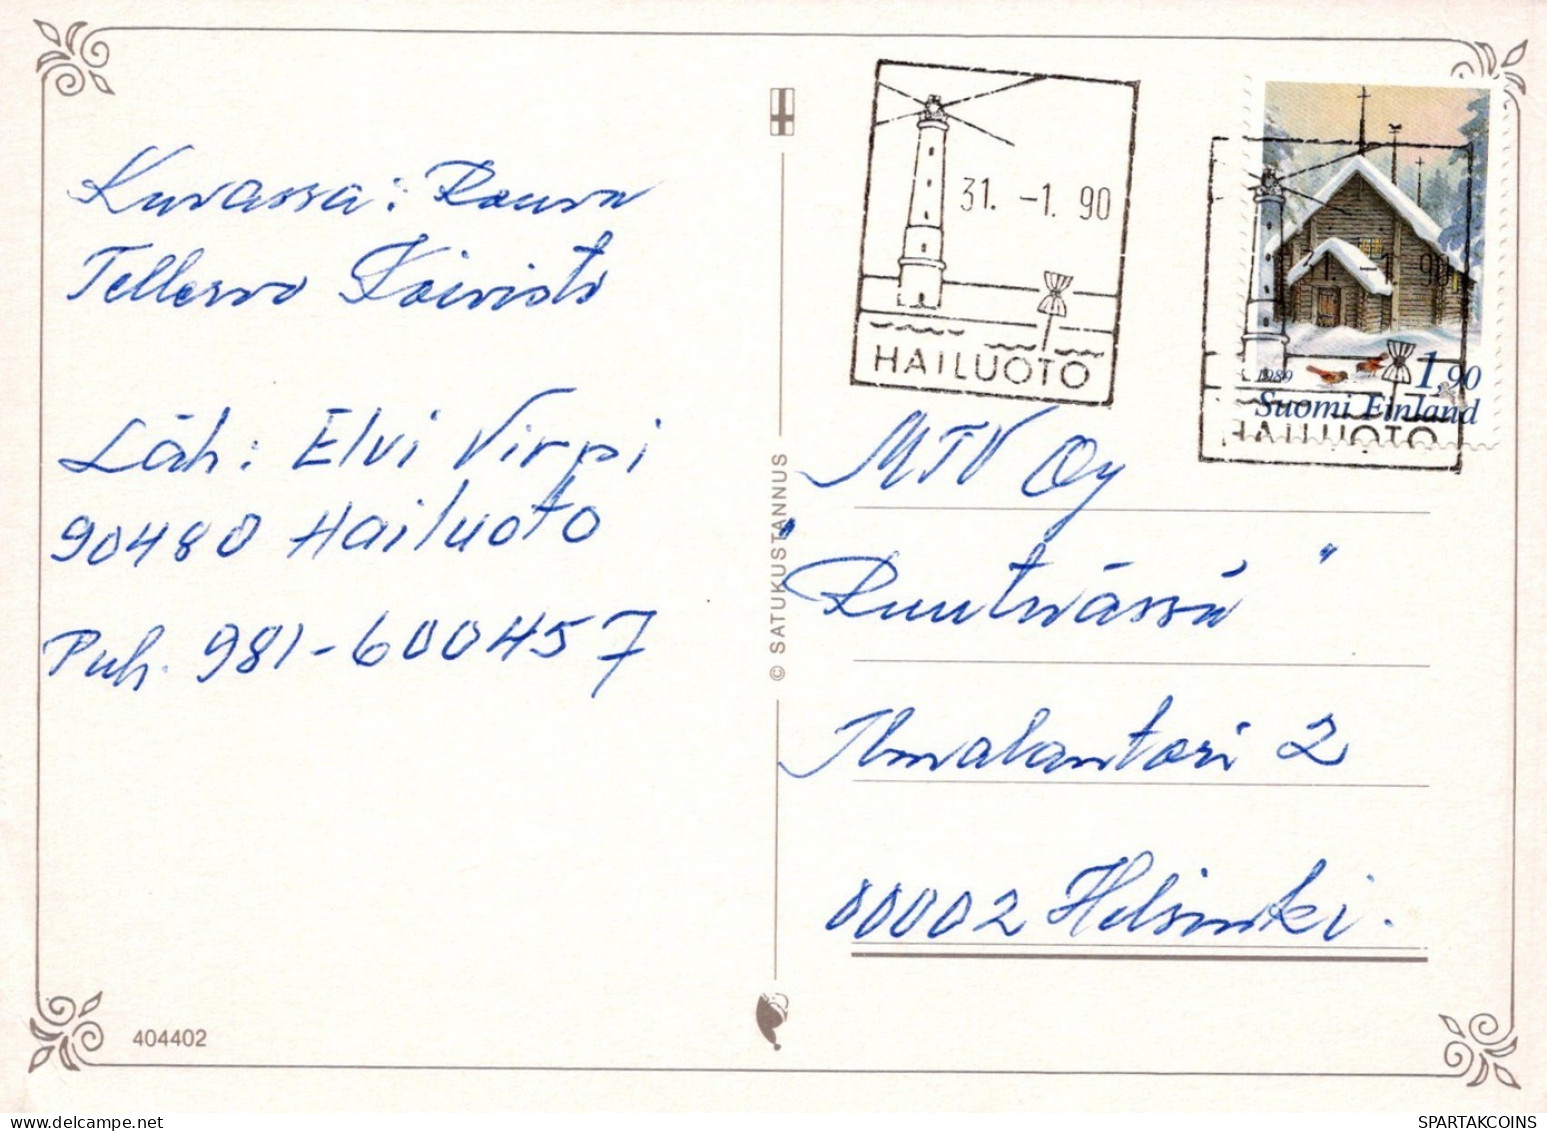 Kuvassa: Rouva
Tellervo Koivisto
Läh: Elvi Virpi
90480 Hailuoto
Puh. 981-600457
404402
© SATUKUSTANNUS
31. -1. 90
HAILUOTO
31. -1. 90
1989
1,90
Suomi Finland
HAILUOTO
MTV Oy
"Ruutuässä"
Ilmalantori 2
00002 Helsinki.
SPARTAKCOINS